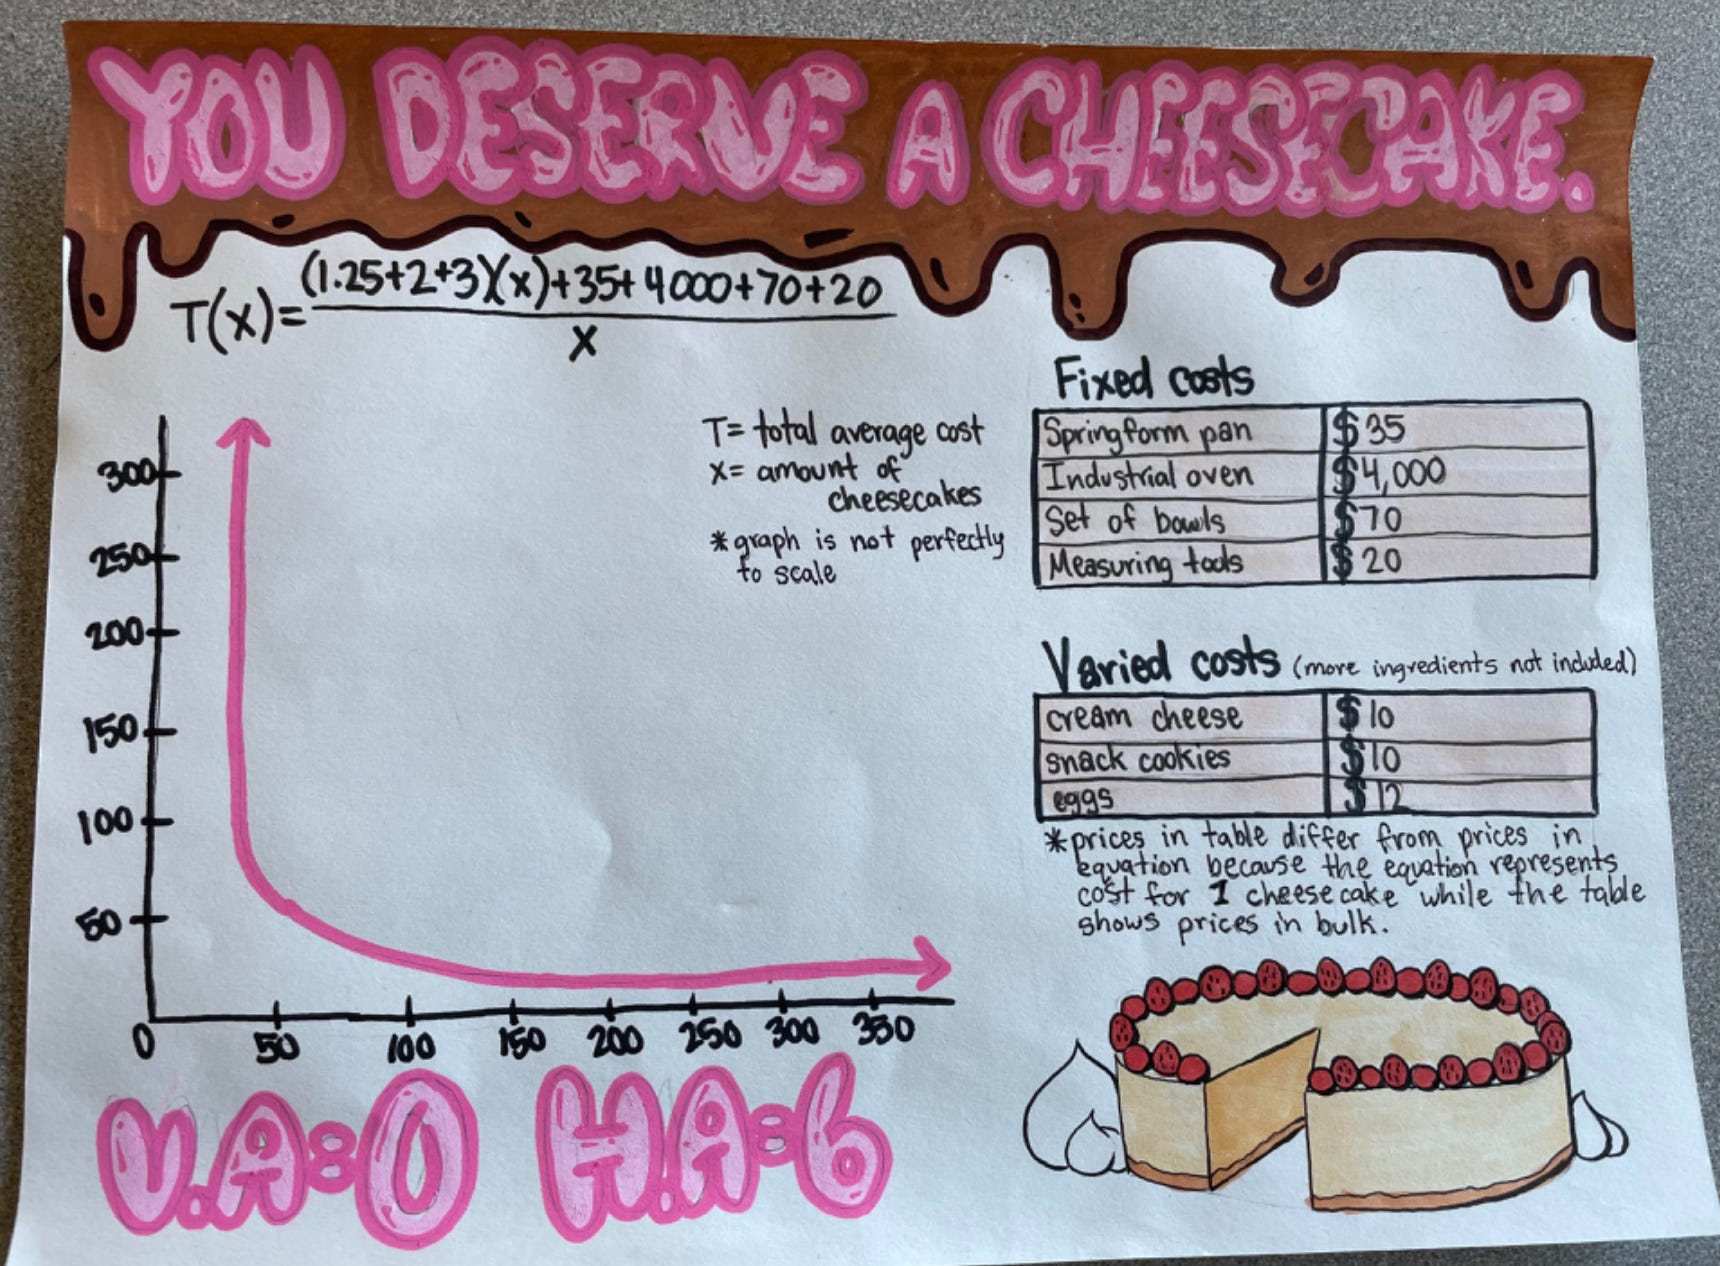 YOU DESERVE A CHEESECAKE.
T(x)= (1.25+2+3)(x)+35+4000+70+20
x
T= total average cost
x= amount of
cheesecakes
*graph is not perfectly
to scale
300
250
200
150
100
50
0
50
100
150
200
250
300
350
V.A=0 H.A=6
Fixed costs
Springform pan $35
Industrial oven $4,000
Set of bowls $70
Measuring tools $20
Varied costs (more ingredients not included)
cream cheese $10
snack cookies $10
eggs $12
*prices in table differ from prices in
equation because the equation represents
cost for 1 cheesecake while the table
shows prices in bulk.